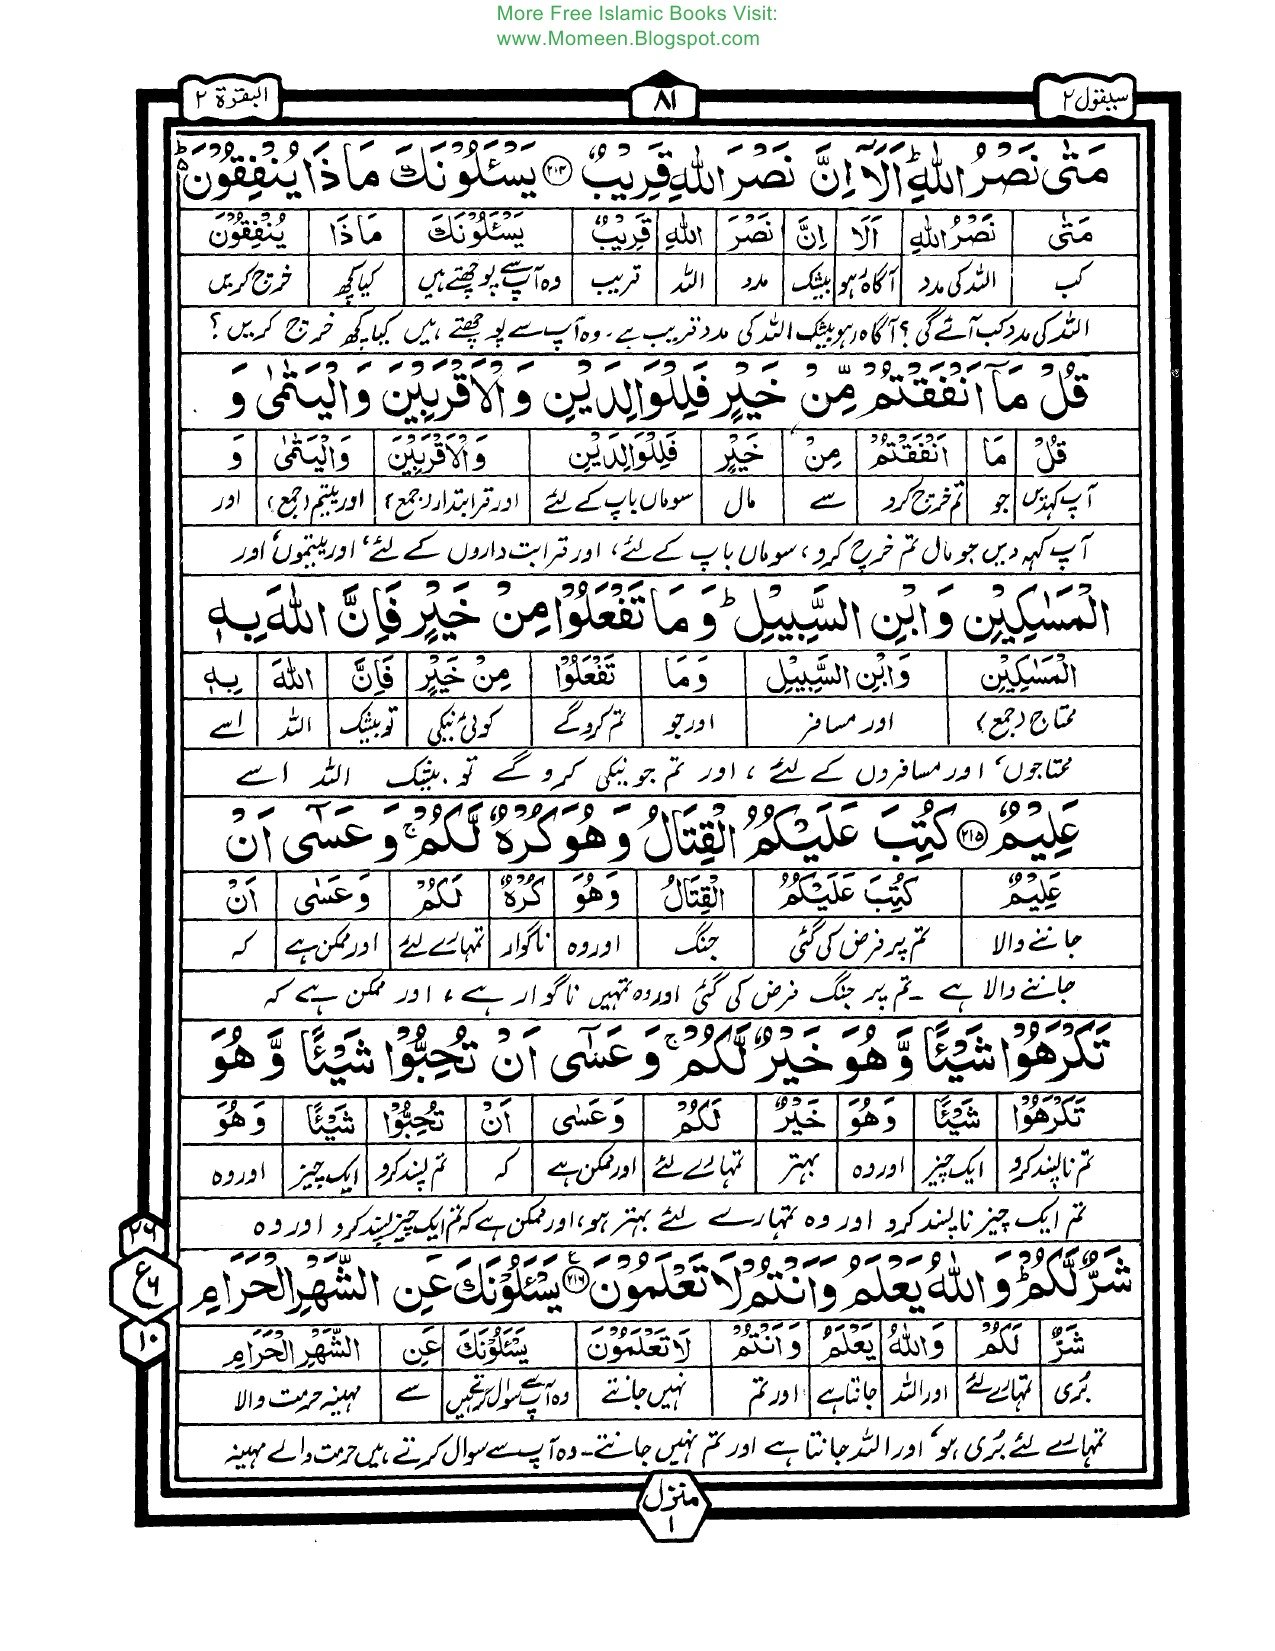 More Free Islamic Books Visit:
www.Momeen.Blogspot.com
سیقول ۲
۸۱
البقرة ۲
مَتٰى نَصْرُ اللّٰهِ ؕ اَلَاۤ اِنَّ نَصْرَ اللّٰهِ قَرِيْبٌ ۝۲۱۴ يَسْـَٔلُوْنَكَ مَا ذَا يُنْفِقُوْنَ ؕ
مَتٰى نَصْرُ اللّٰهِ اَلَا اِنَّ نَصْرَ اللّٰهِ قَرِيْبٌ يَسْـَٔلُوْنَكَ مَاذَا يُنْفِقُوْنَ
کب اللہ کی مدد آگاہ رہو بیشک مدد اللہ قریب وہ آپ سے پوچھتے ہیں کیا کچھ خرچ کریں
اللہ کی مدد کب آئے گی ؟ آگاہ رہو بیشک اللہ کی مدد قریب ہے۔ وہ آپ سے پوچھتے ہیں کیا کچھ خرچ کریں ؟
قُلْ مَاۤ اَنْفَقْتُمْ مِّنْ خَيْرٍ فَلِلْوَالِدَيْنِ وَ الْاَقْرَبِيْنَ وَ الْيَتٰمٰى وَ
قُلْ مَا اَنْفَقْتُمْ مِنْ خَيْرٍ فَلِلْوَالِدَيْنِ وَالْاَقْرَبِيْنَ وَالْيَتٰمٰى وَ
آپ کہدیں جو تم خرچ کرو سے مال سو ماں باپ کے لئے اور قرابتدار (جمع) اور یتیم (جمع) اور
آپ کہہ دیں جو مال تم خرچ کرو ، سو ماں باپ کے لئے ، اور قرابت داروں کے لئے ، اور یتیموں ، اور
الْمَسٰكِيْنِ وَ ابْنِ السَّبِيْلِ ؕ وَ مَا تَفْعَلُوْا مِنْ خَيْرٍ فَاِنَّ اللّٰهَ بِهٖ
الْمَسٰكِيْنِ وَابْنِ السَّبِيْلِ وَمَا تَفْعَلُوْا مِنْ خَيْرٍ فَاِنَّ اللّٰهَ بِهٖ
محتاج (جمع) اور مسافر اور جو تم کرو گے کوئی نیکی تو بیشک اللہ اسے
محتاجوں ، اور مسافروں کے لئے ، اور تم جو نیکی کرو گے تو بیشک اللہ اسے
عَلِيْمٌ ۝۲۱۵ كُتِبَ عَلَيْكُمُ الْقِتَالُ وَ هُوَ كُرْهٌ لَّكُمْ ۚ وَ عَسٰۤى اَنْ
عَلِيْمٌ كُتِبَ عَلَيْكُمُ الْقِتَالُ وَهُوَ كُرْهٌ لَكُمْ وَعَسٰى اَنْ
جاننے والا تم پر فرض کی گئی جنگ اور وہ ناگوار تمہارے لئے اور ممکن ہے کہ
جاننے والا ہے ۔ تم پر جنگ فرض کی گئی اور وہ تمہیں ناگوار ہے ، اور ممکن ہے کہ
تَكْرَهُوْا شَيْـًٔا وَّ هُوَ خَيْرٌ لَّكُمْ ۚ وَ عَسٰۤى اَنْ تُحِبُّوْا شَيْـًٔا وَّ هُوَ
تَكْرَهُوْا شَيْـًٔا وَهُوَ خَيْرٌ لَكُمْ وَعَسٰى اَنْ تُحِبُّوْا شَيْـًٔا وَهُوَ
تم ناپسند کرو ایک چیز اور وہ بہتر تمہارے لئے اور ممکن ہے کہ تم پسند کرو ایک چیز اور وہ
تم ایک چیز ناپسند کرو اور وہ تمہارے لئے بہتر ہو ، اور ممکن ہے کہ تم ایک چیز پسند کرو اور وہ
شَرٌّ لَّكُمْ ؕ وَ اللّٰهُ يَعْلَمُ وَ اَنْتُمْ لَا تَعْلَمُوْنَ ۝۲۱۶ يَسْـَٔلُوْنَكَ عَنِ الشَّهْرِ الْحَرَامِ
شَرٌّ لَكُمْ وَاللّٰهُ يَعْلَمُ وَاَنْتُمْ لَا تَعْلَمُوْنَ يَسْـَٔلُوْنَكَ عَنِ الشَّهْرِ الْحَرَامِ
بُری تمہارے لئے اور اللہ جانتا ہے اور تم نہیں جانتے وہ آپ سے سوال کرتے ہیں سے مہینہ حرمت والا
تمہارے لئے بُری ہو ، اور اللہ جانتا ہے اور تم نہیں جانتے ۔ وہ آپ سے سوال کرتے ہیں حرمت والے مہینہ
۲۶
ع ۶
۱۰
منزل
۱